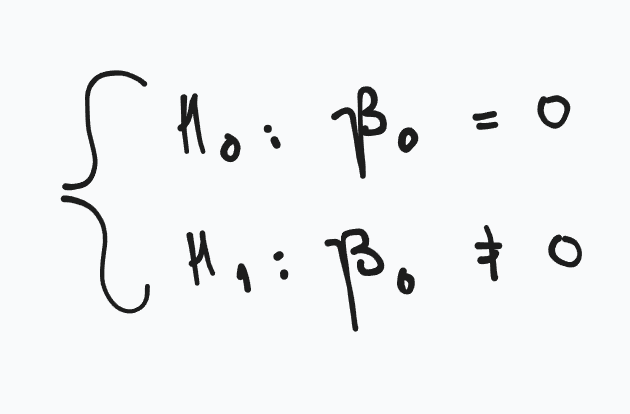 H₀: β₀ = 0
H₁: β₀ ≠ 0